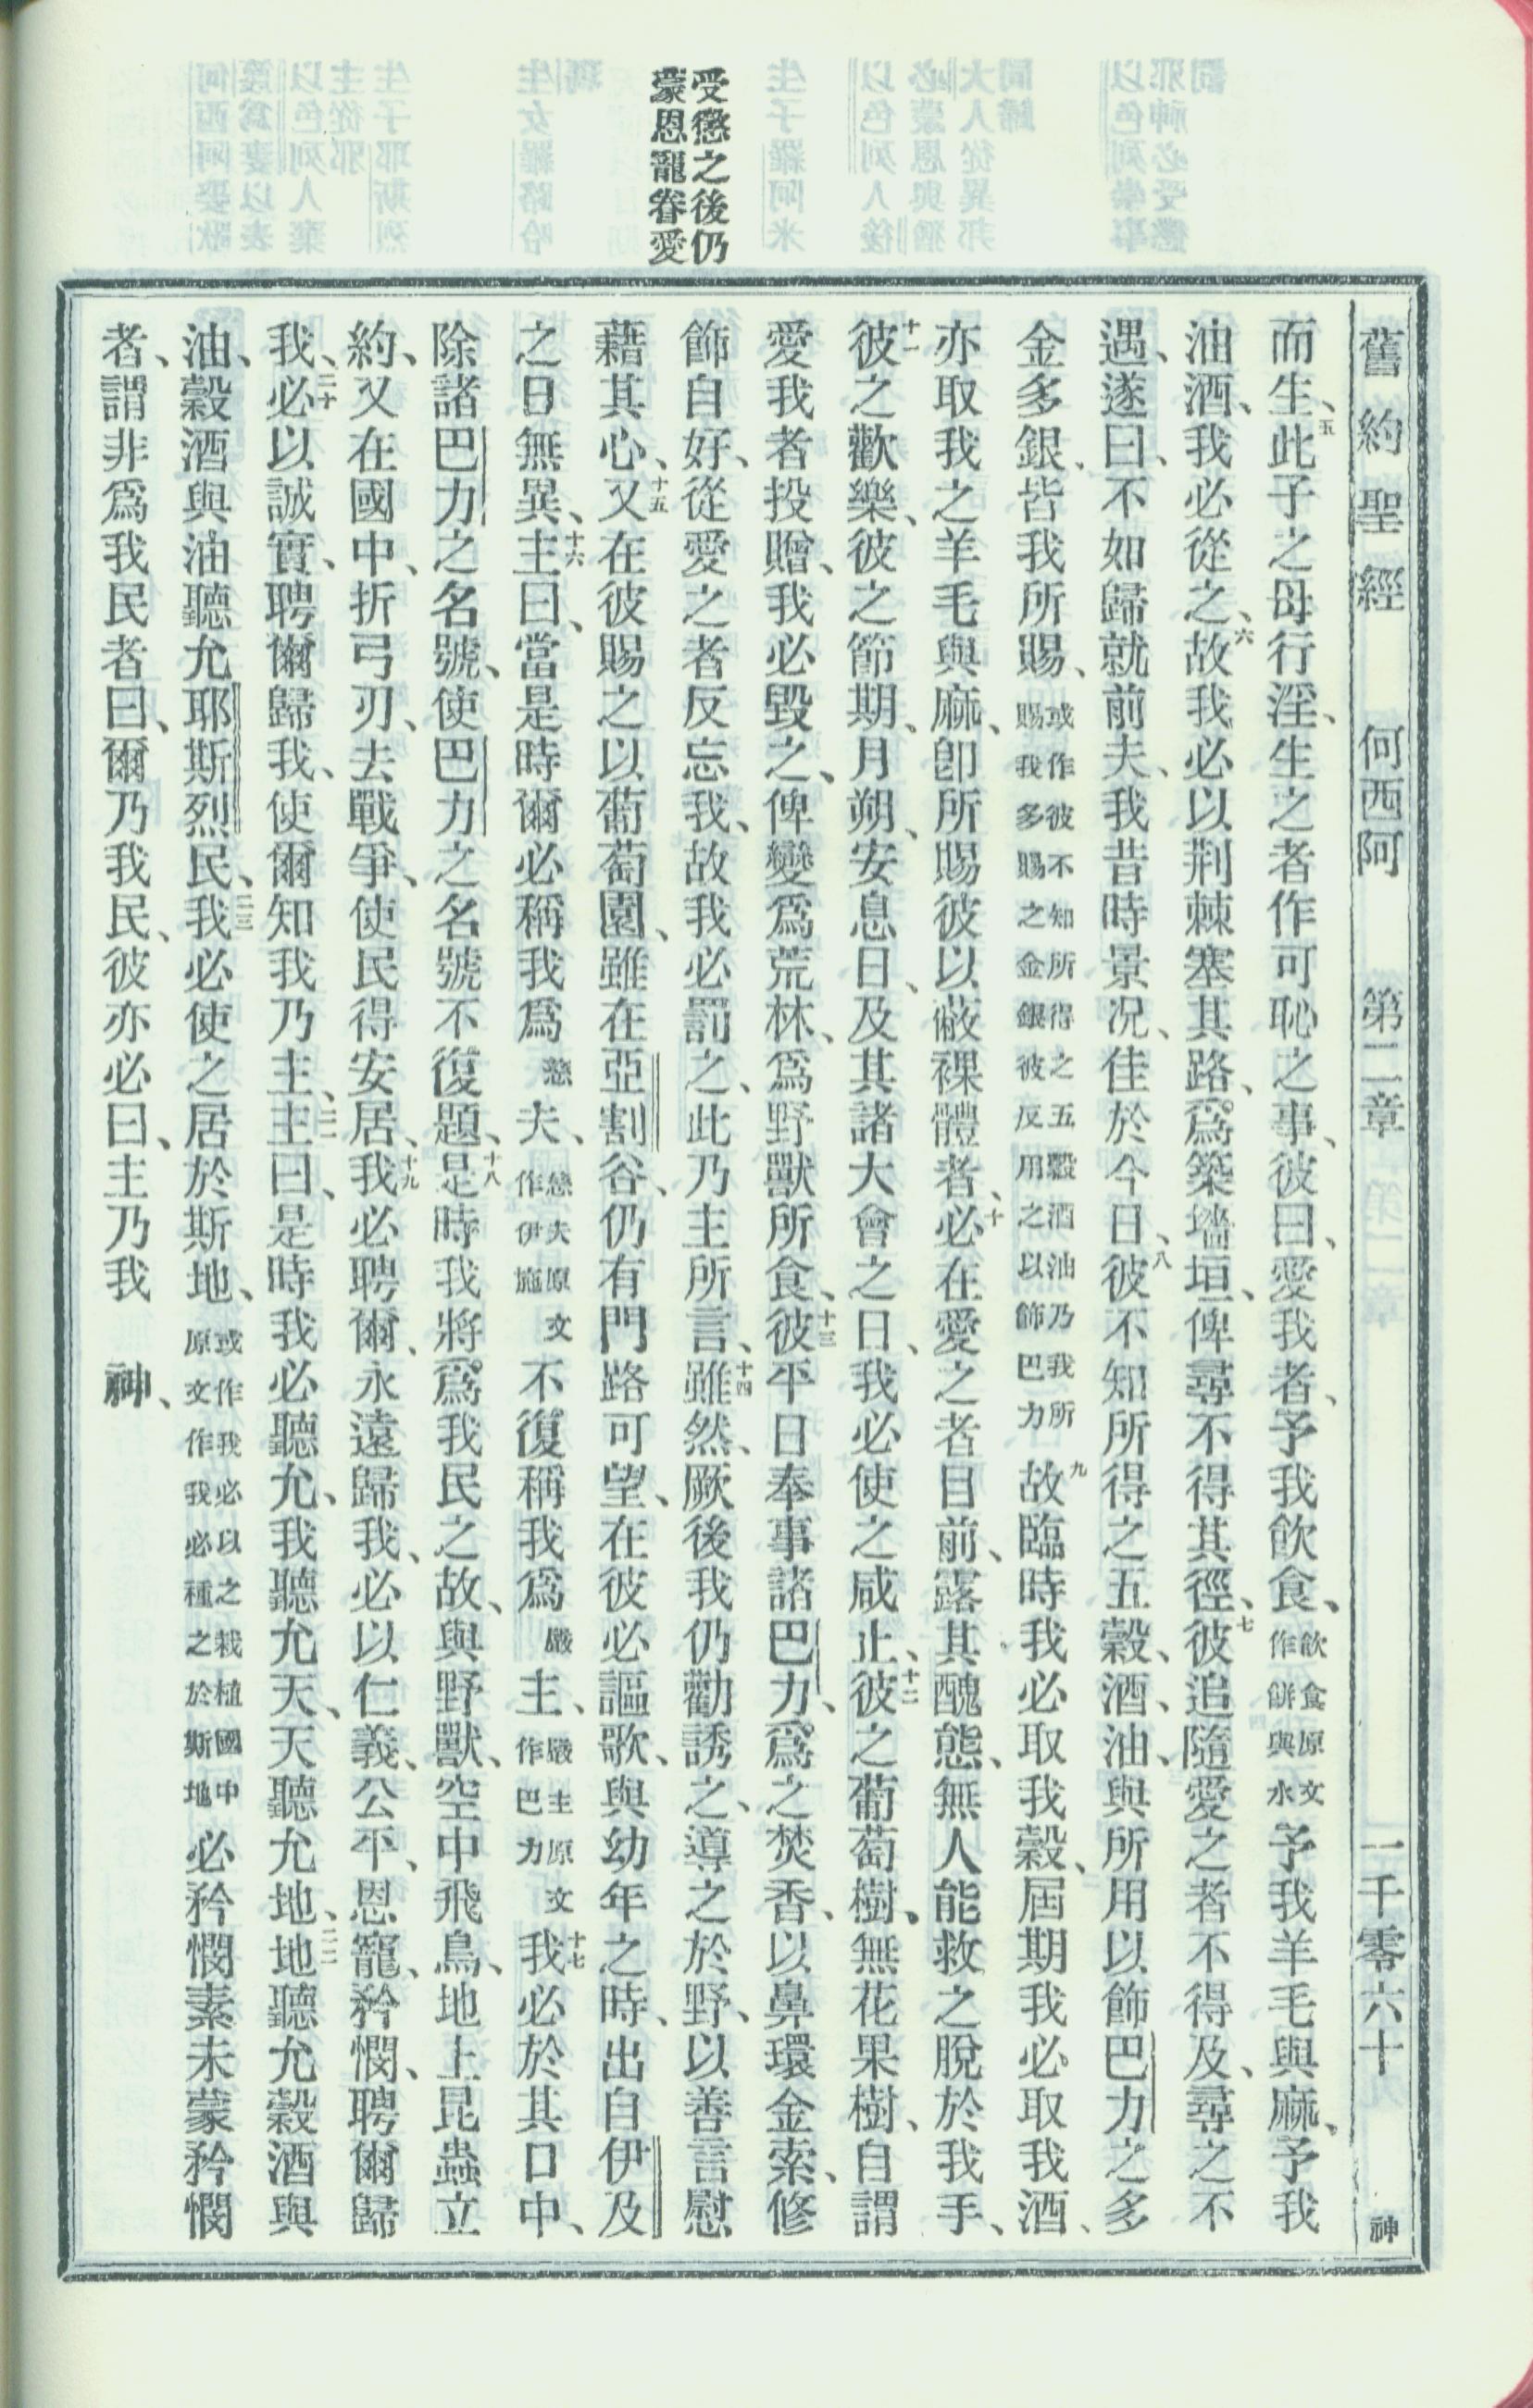 舊約聖經 何西阿 第二章 一千零六十 神
受懲之後仍
蒙恩寵眷愛
而生、五此子之母行淫、生之者作可恥之事、彼曰、愛我者、予我飲食、飲食原文作餅與水予我羊毛與麻、予我
油酒、我必從之、六故我必以荆棘塞其路、爲築墻垣、俾尋不得其徑、七彼追隨愛之者不得及、尋之不
遇、遂曰、不如歸就前夫、我昔時景況、佳於今日、八彼不知所得之五穀、酒、油、與所用以飾巴力之多
金多銀、皆我所賜、或作彼不知所得之五穀酒油乃我所賜我多賜之金銀彼反用之以飾巴力九故臨時我必取我穀、屆期我必取我酒、
亦取我之羊毛與麻、卽所賜彼以蔽裸體者、十必在愛之者目前、露其醜態、無人能救之脫於我手、
十一彼之歡樂、彼之節期、月朔、安息日、及其諸大會之日、我必使之咸止、十二彼之葡萄樹、無花果樹、自謂
愛我者投贈、我必毀之、俾變爲荒林、爲野獸所食、十三彼平日奉事諸巴力、爲之焚香、以鼻環金索、修
飾自好、從愛之者反忘我、故我必罰之、此乃主所言、十四雖然、厥後我仍勸誘之、導之於野、以善言慰
藉其心、十五又在彼賜之以葡萄園、雖在亞割谷、仍有門路可望、在彼必謳歌、與幼年之時、出自伊及
之日無異、十六主曰、當是時爾必稱我爲戀夫、戀夫原文作伊施不復稱我爲嚴主、嚴主原文作巴力十七我必於其口中、
除諸巴力之名號、使巴力之名號不復題、十八是時我將爲我民之故、與野獸、空中飛鳥、地上昆蟲立
約、又在國中、折弓刃、去戰爭、使民得安居、十九我必聘爾、永遠歸我、必以仁義、公平、恩寵、矜憫、聘爾歸
我、二十必以誠實、聘爾歸我、使爾知我乃主、二一主曰、是時我必聽允、我聽允天、天聽允地、二二地聽允穀酒與
油、穀酒與油聽允耶斯烈民、二三我必使之居於斯地、或作我必以之栽植國中原文作我必種之於斯地必矜憫素未蒙矜憫
者、謂非爲我民者曰、爾乃我民、彼亦必曰、主乃我神、